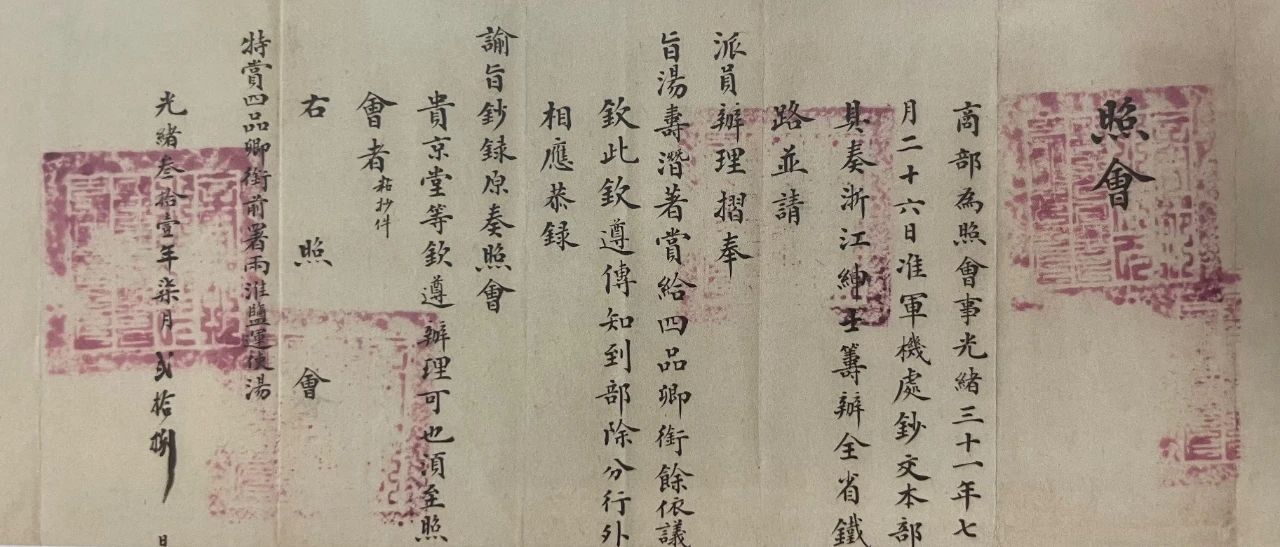 照會
商部為照會事光緒三十一年七
月二十六日准軍機處鈔交本部
具奏浙江紳士籌辦全省鐵
路並請
派員辦理摺奉
旨湯壽潛著賞給四品卿銜餘依議
欽此欽遵傳知到部除分行外
相應恭録
諭旨鈔録原奏照會
貴京堂等欽遵辦理可也須至照
會者粘抄件
右照會
特賞四品卿銜前署兩淮鹽運使湯
光緒叁拾壹年柒月貳拾捌日